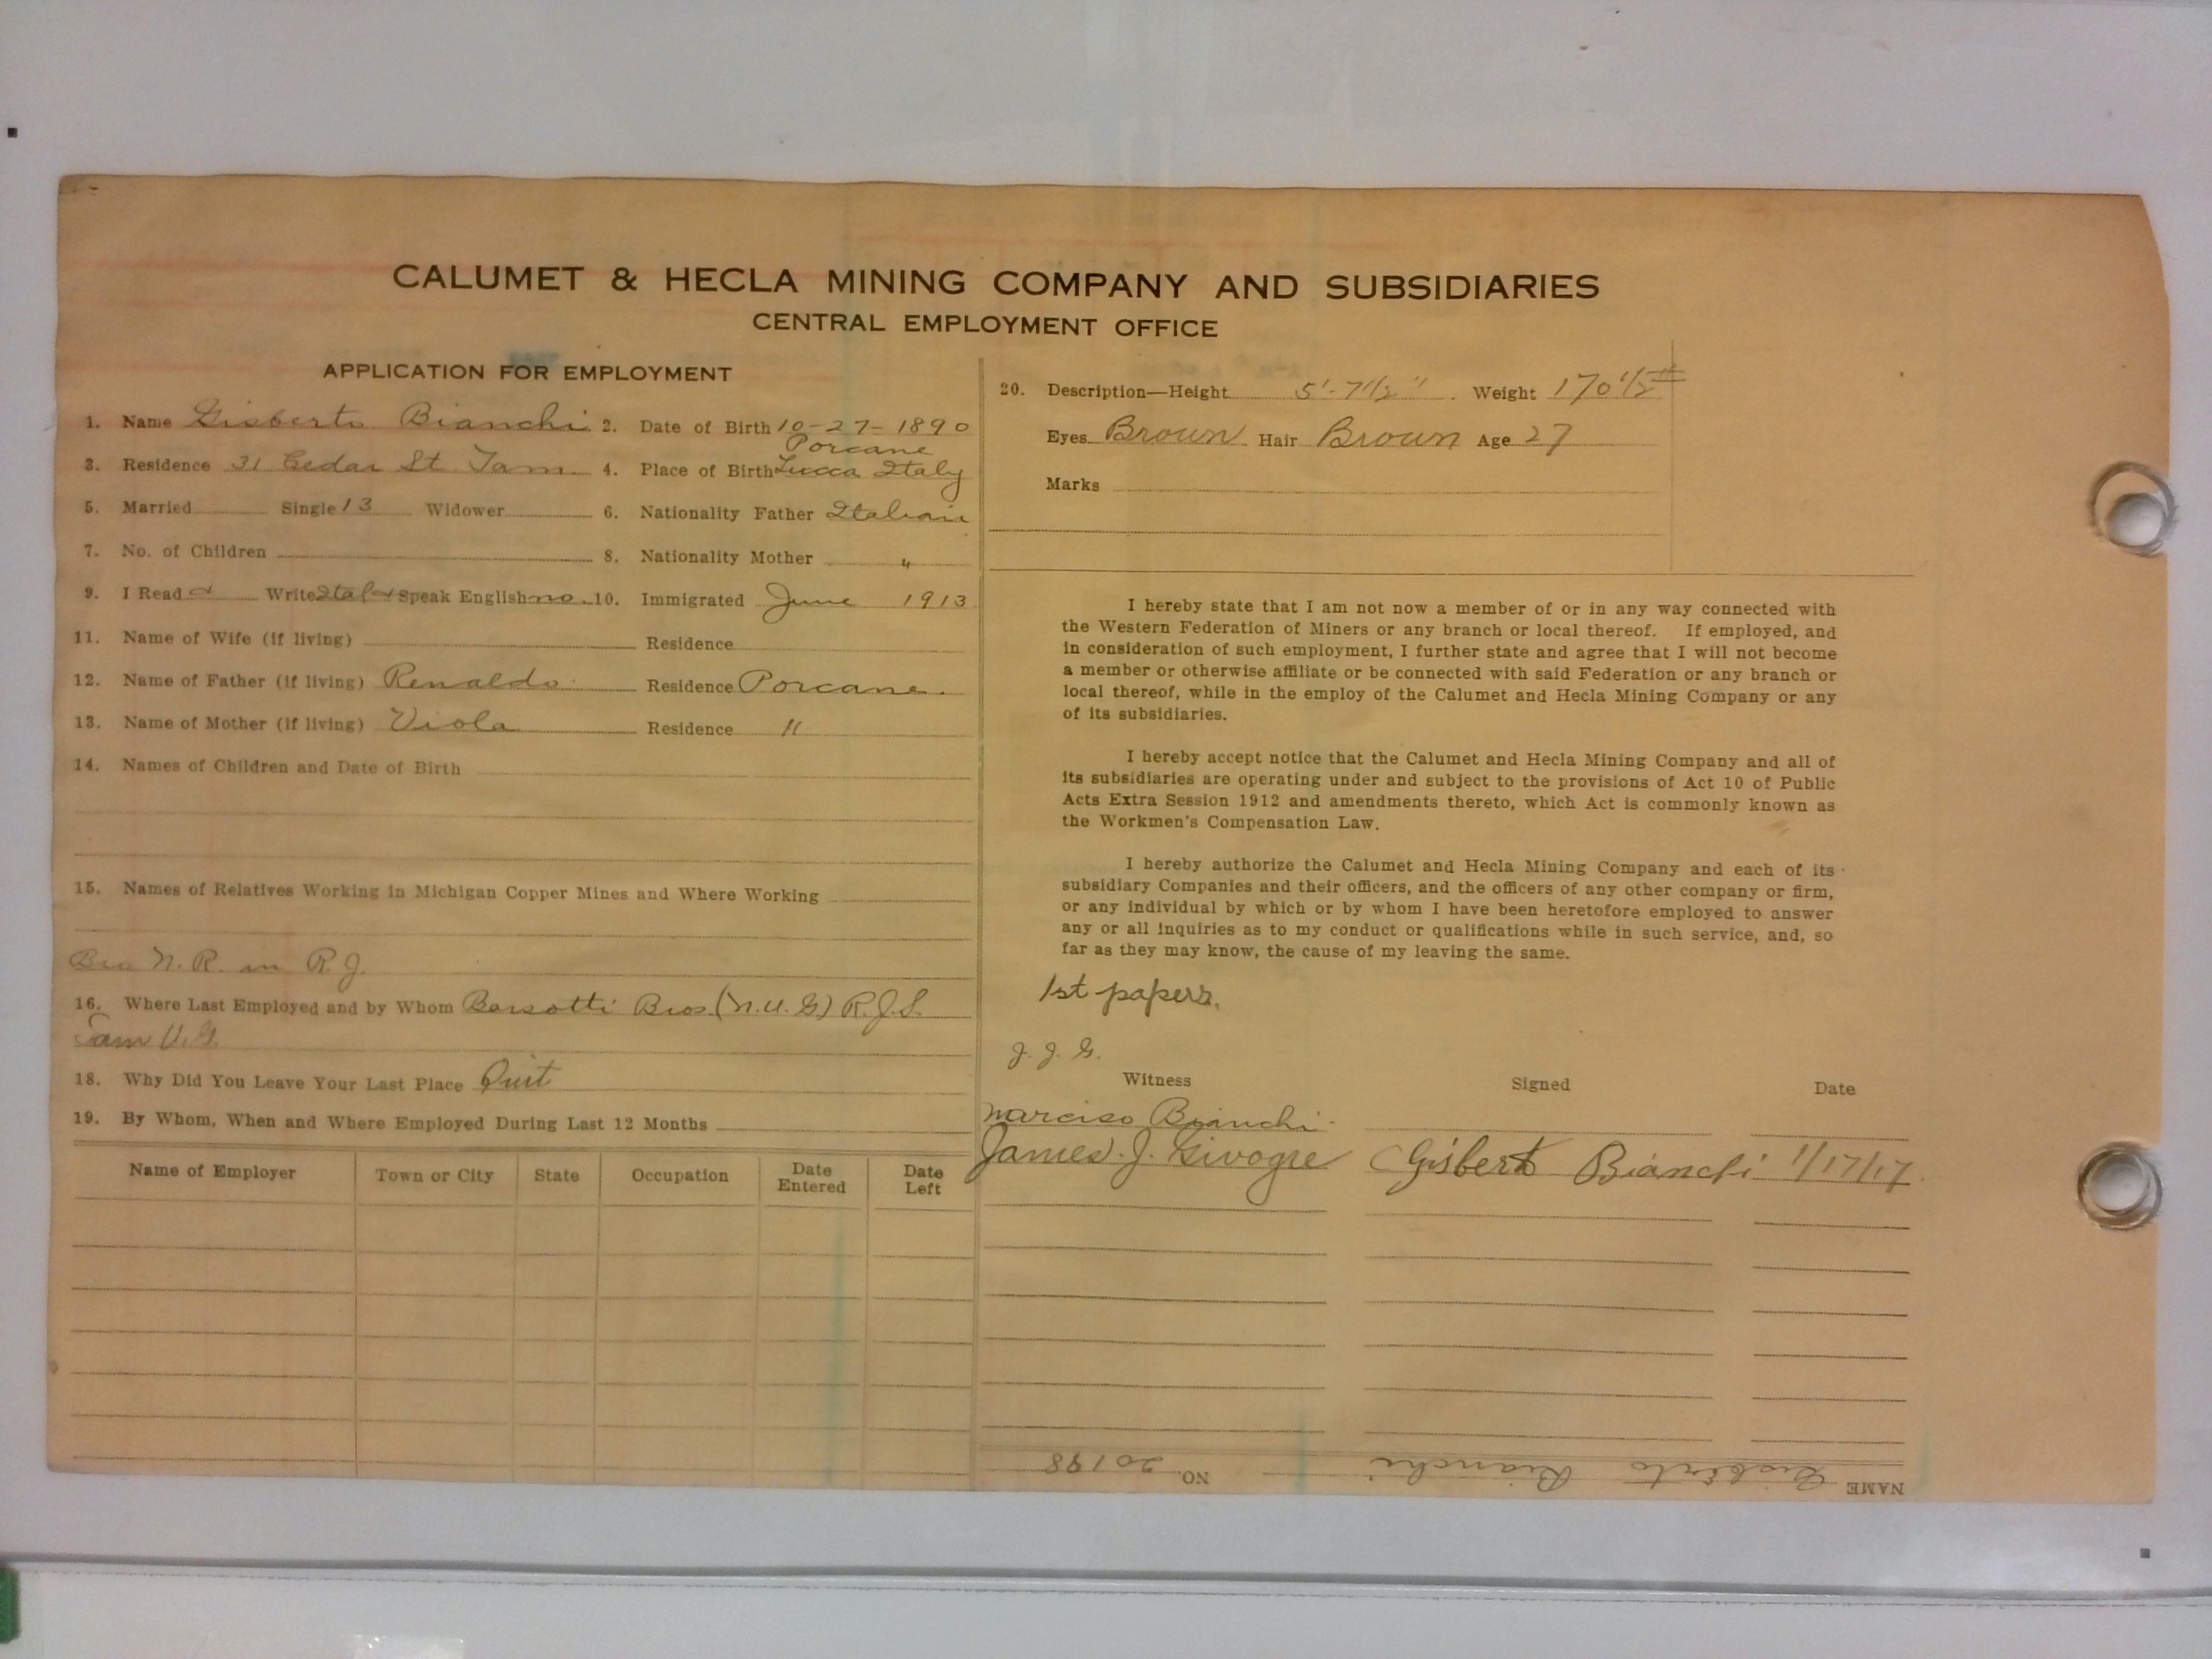 CALUMET & HECLA MINING COMPANY AND SUBSIDIARIES
CENTRAL EMPLOYMENT OFFICE
APPLICATION FOR EMPLOYMENT
1. Name Gisberto Bianchi 2. Date of Birth 10-27-1890
Porcane
3. Residence 31 Cedar St. Tam. 4. Place of Birth Lucca Italy
5. Married Single 13 Widower 6. Nationality Father Italian
7. No. of Children 8. Nationality Mother "
9. I Read & Write Ital & Speak English no 10. Immigrated June 1913
11. Name of Wife (if living) Residence
12. Name of Father (if living) Renaldo Residence Porcane.
13. Name of Mother (if living) Viola Residence "
14. Names of Children and Date of Birth
15. Names of Relatives Working in Michigan Copper Mines and Where Working
Bro N. R. in R. J.
16. Where Last Employed and by Whom Barsotti Bros. (N.U.G) R.J.S.
Tam U.G.
18. Why Did You Leave Your Last Place Quit
19. By Whom, When and Where Employed During Last 12 Months
Name of Employer Town or City State Occupation Date Entered Date Left
20. Description—Height 5'-7 1/2" Weight 170 1/2 #
Eyes Brown Hair Brown Age 27
Marks
I hereby state that I am not now a member of or in any way connected with
the Western Federation of Miners or any branch or local thereof. If employed, and
in consideration of such employment, I further state and agree that I will not become
a member or otherwise affiliate or be connected with said Federation or any branch or
local thereof, while in the employ of the Calumet and Hecla Mining Company or any
of its subsidiaries.
I hereby accept notice that the Calumet and Hecla Mining Company and all of
its subsidiaries are operating under and subject to the provisions of Act 10 of Public
Acts Extra Session 1912 and amendments thereto, which Act is commonly known as
the Workmen's Compensation Law.
I hereby authorize the Calumet and Hecla Mining Company and each of its
subsidiary Companies and their officers, and the officers of any other company or firm,
or any individual by which or by whom I have been heretofore employed to answer
any or all inquiries as to my conduct or qualifications while in such service, and, so
far as they may know, the cause of my leaving the same.
1st papers.
J. J. G.
Witness Signed Date
Narciso Bianchi
James. J. Givogre Gisbert Bianchi 1/17/17
NAME Gisberto Bianchi NO. 20198